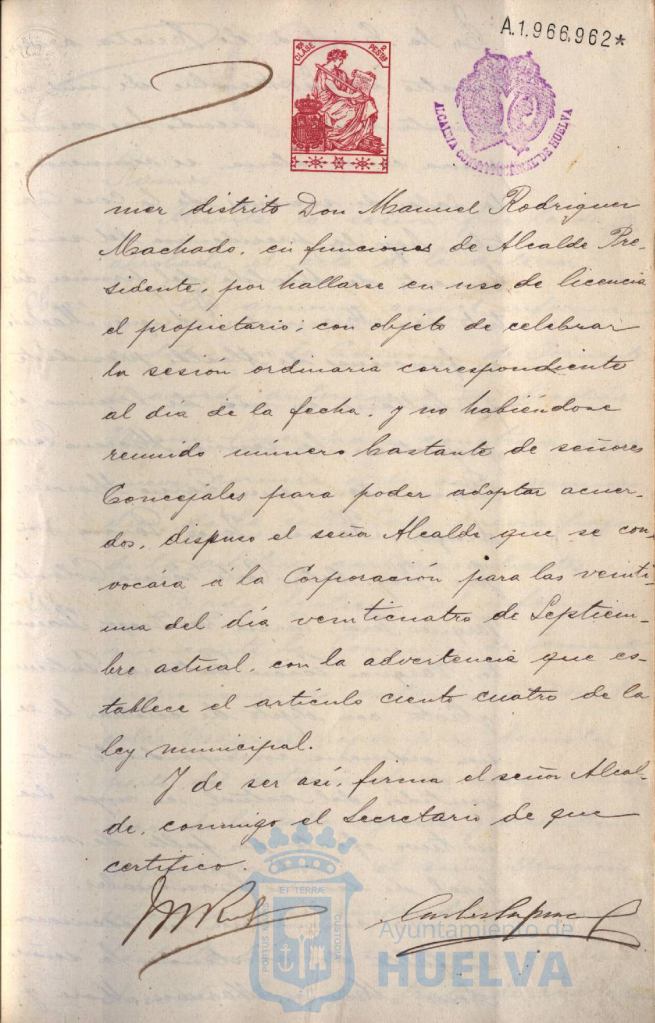 A.1.966,962*
1ª CLASE
2 PESTAS
ALCALDIA CONSTITUCIONAL DE HUELVA
mer distrito Don Manuel Rodriguez
Machado, en funciones de Alcalde Pre-
sidente, por hallarse en uso de licencia
el propietario; con objeto de celebrar
la sesión ordinaria correspondiente
al día de la fecha. y no habiéndose
reunido número bastante de señores
Concejales para poder adoptar acuer-
dos, dispuso el señor Alcalde que se con-
vocára á la Corporación para las veinti-
una del día veinticuatro de Septiem-
bre actual, con la advertencia que es-
tablece el artículo ciento cuatro de la
ley municipal.
Y de ser así, firma el señor Alcal-
de, conmigo el Secretario de que
certifico.
PORTUS MARIS ET TERRÆ CUSTODIA
Ayuntamiento de
HUELVA